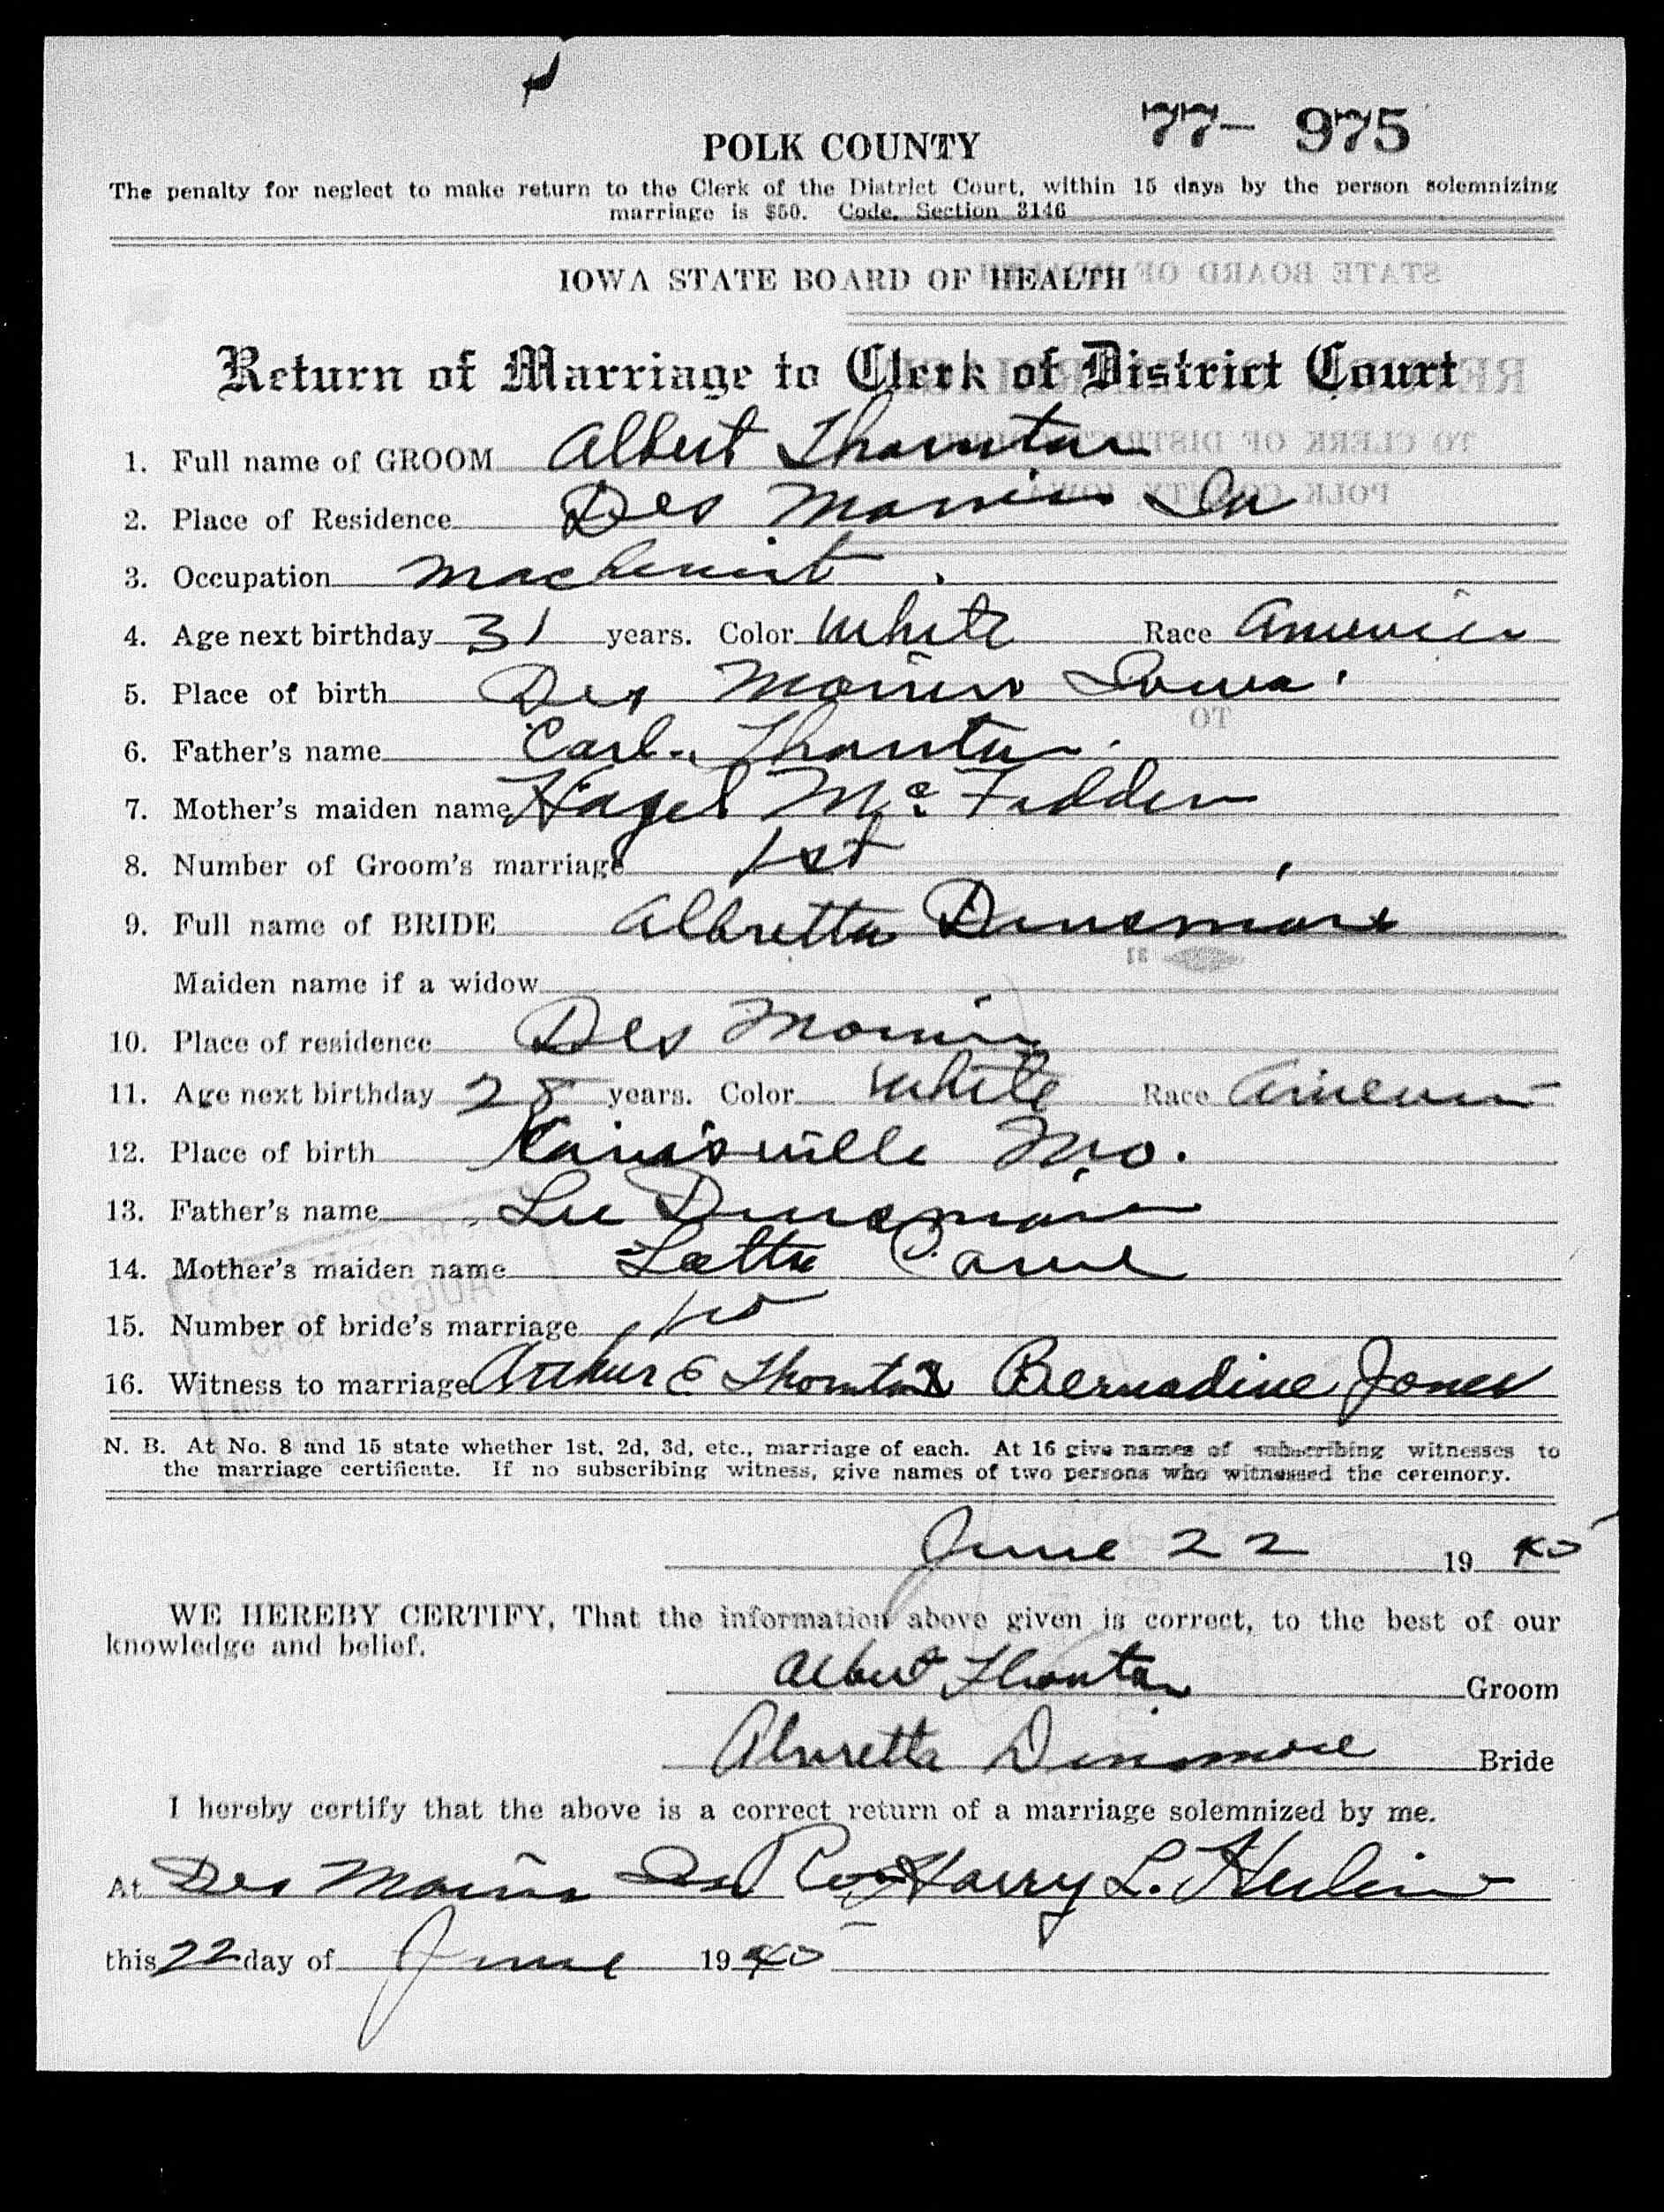 77- 975
POLK COUNTY
The penalty for neglect to make return to the Clerk of the District Court, within 15 days by the person solemnizing
marriage is $50. Code, Section 3146
IOWA STATE BOARD OF HEALTH
Return of Marriage to Clerk of District Court
1. Full name of GROOM Albert Thornton
2. Place of Residence Des Moines Ia
3. Occupation machinist
4. Age next birthday 31 years. Color White Race American
5. Place of birth Des Moines Iowa
6. Father's name Carl Thornton
7. Mother's maiden name Hazel McFadden
8. Number of Groom's marriage 1st
9. Full name of BRIDE Albretta Dinsmore
Maiden name if a widow
10. Place of residence Des Moines
11. Age next birthday 28 years. Color White Race American
12. Place of birth Mo.
13. Father's name Lee Dinsmore
14. Mother's maiden name
15. Number of bride's marriage
16. Witness to marriage Arthur E Thornton Bernadine Jones
N. B. At No. 8 and 15 state whether 1st, 2d, 3d, etc., marriage of each. At 16 give names of subscribing witnesses to
the marriage certificate. If no subscribing witness, give names of two persons who witnessed the ceremony.
June 22 1940
WE HEREBY CERTIFY, That the information above given is correct, to the best of our
knowledge and belief.
Albert Thornton Groom
Alvretta Dinsmore Bride
I hereby certify that the above is a correct return of a marriage solemnized by me.
At Des Moines Harry L.
this 22 day of June 1940